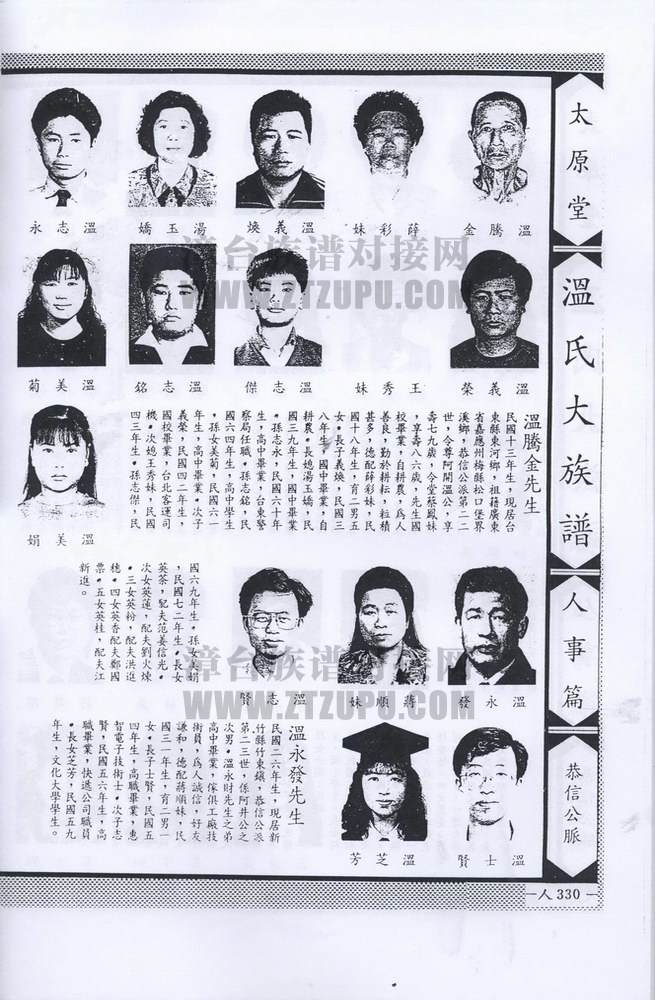 太原堂
溫氏大族譜
人事篇
恭信公脈
溫騰金
薛彩妹
溫義煥
湯玉嬌
溫志永
溫義榮
王秀妹
溫志傑
溫志銘
溫美菊
溫美娟
溫騰金先生
民國十三年生，現居台
東縣東河鄉，祖籍廣東
省嘉應州梅縣松口堡界
溪鄉，恭信公派第二二
世，令尊阿開溫公，享
壽七九歲，令堂蔡鳳妹
，享壽八六歲，先生國
校畢業，自耕農，為人
善良，勤於耕耘，粒積
甚多，德配薛彩妹，民
國十八年生，育二男五
女。長子義煥，民國三
八年生，國中畢業，自
耕農。長媳湯玉嬌，民
國三九年生，國中畢業
。孫志永，民國六十年
生，高中畢業，台東警
察局任職。孫志銘，民
國六四年生，高中學生
，孫女美菊，民國六一
年生，高中畢業。次子
義榮，民國四二年生，
國校畢業，台北客運司
機。次媳王秀妹，民國
四三年生。孫志傑，民
國六九年生。孫女美娟
，民國七二年生。長女
英茶，配夫范姜信光。
次女英蓮，配夫劉火煉
。三女英粉，配夫洪進
穗。四女英香配夫鄭國
票。五女英桂，配夫江
新進。
溫永發
蔣順妹
溫志賢
溫士賢
溫芝芳
溫永發先生
民國二六年生，現居新
竹縣竹東鎮，恭信公派
第二三世，係阿井公之
次男，溫永財先生之弟
，高中畢業，傢俱工廠技
術員，為人誠信，好友
謙和，德配蔣順妹，民
國三一年生，育二男一
女。長子士賢，民國五
四年生，高職畢業，惠
智電子技術士。次子志
賢，民國五六年生，高
職畢業，快遞公司職員
。長女芝芳，民國五九
年生，文化大學學生。
人330
漳台族谱对接网
WWW.ZTZUPU.COM
漳台族谱对接网
WWW.ZTZUPU.COM